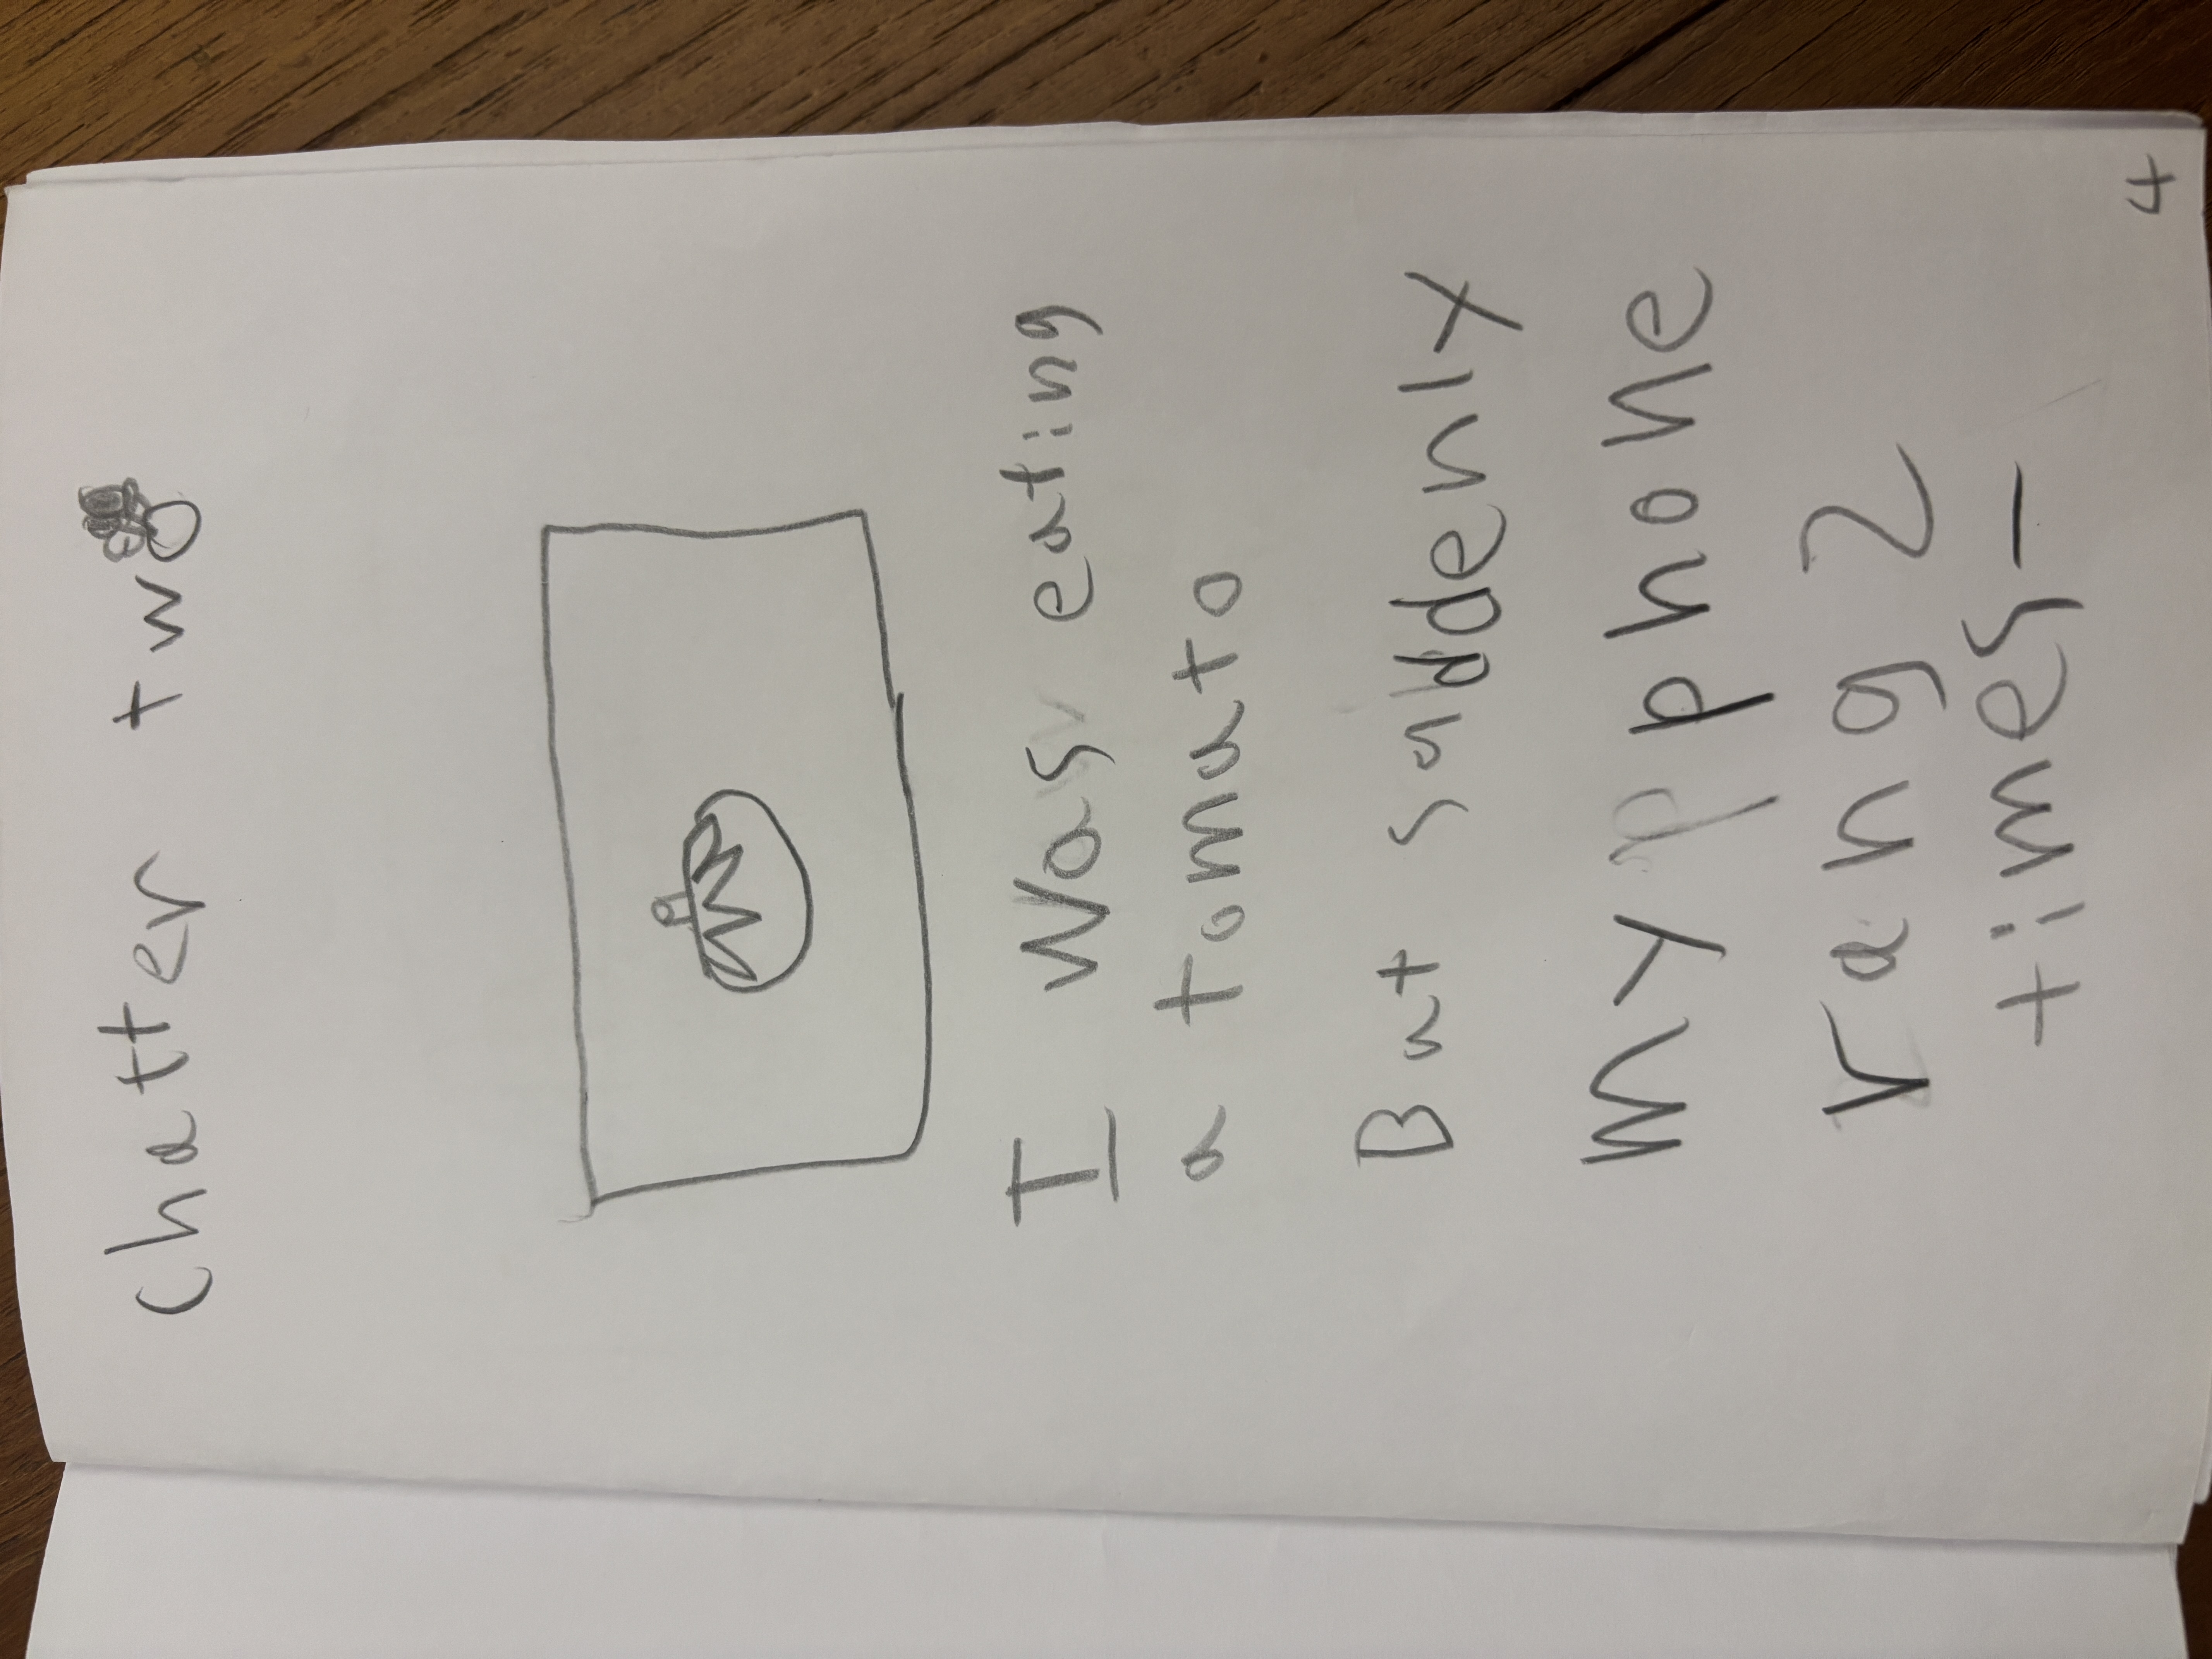 Chatter two
I was eating
a tomato
But suddenly
my phone
rang 2
times-
4